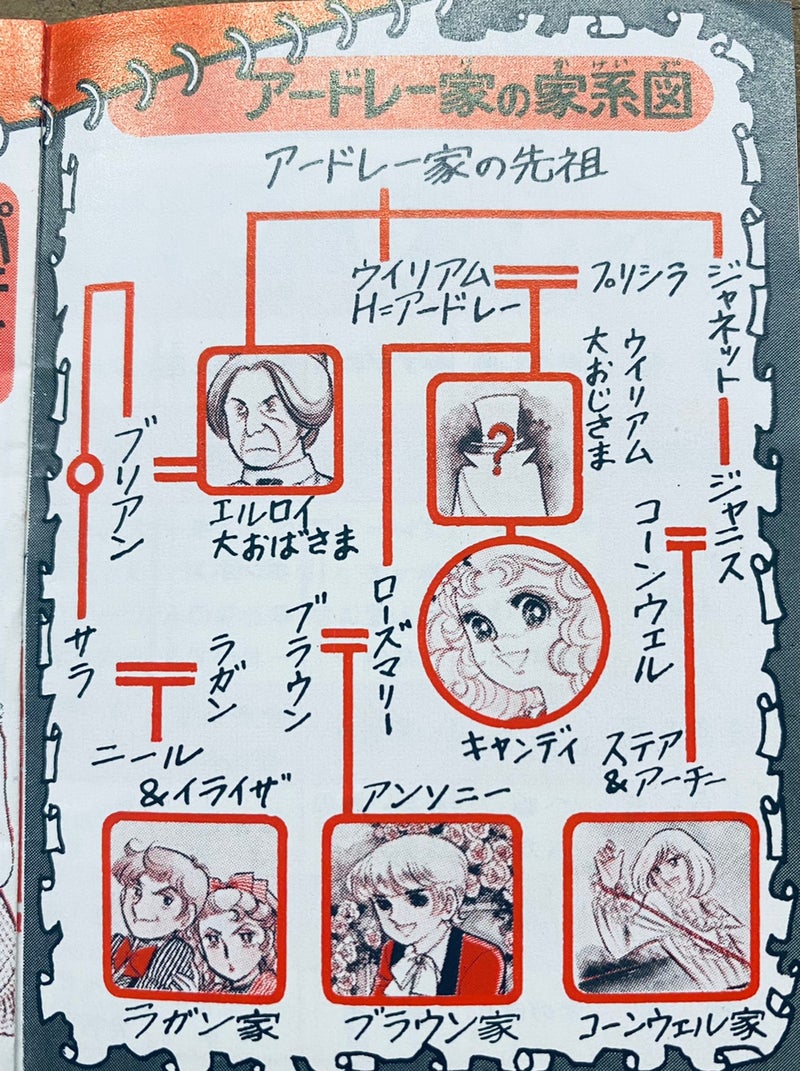 アードレー家の家系図
アードレー家の先祖
ウイリアム
H=アードレー
プリシラ
ジャネット
ウイリアム
大おじさま
?
エルロイ
大おばさま
ブリアン
ジャニス
コーンウェル
ローズマリー
ブラウン
サラ
ラガン
キャンディ
ニール
&イライザ
アンソニー
ステア
&アーチー
ラガン家
ブラウン家
コーンウェル家